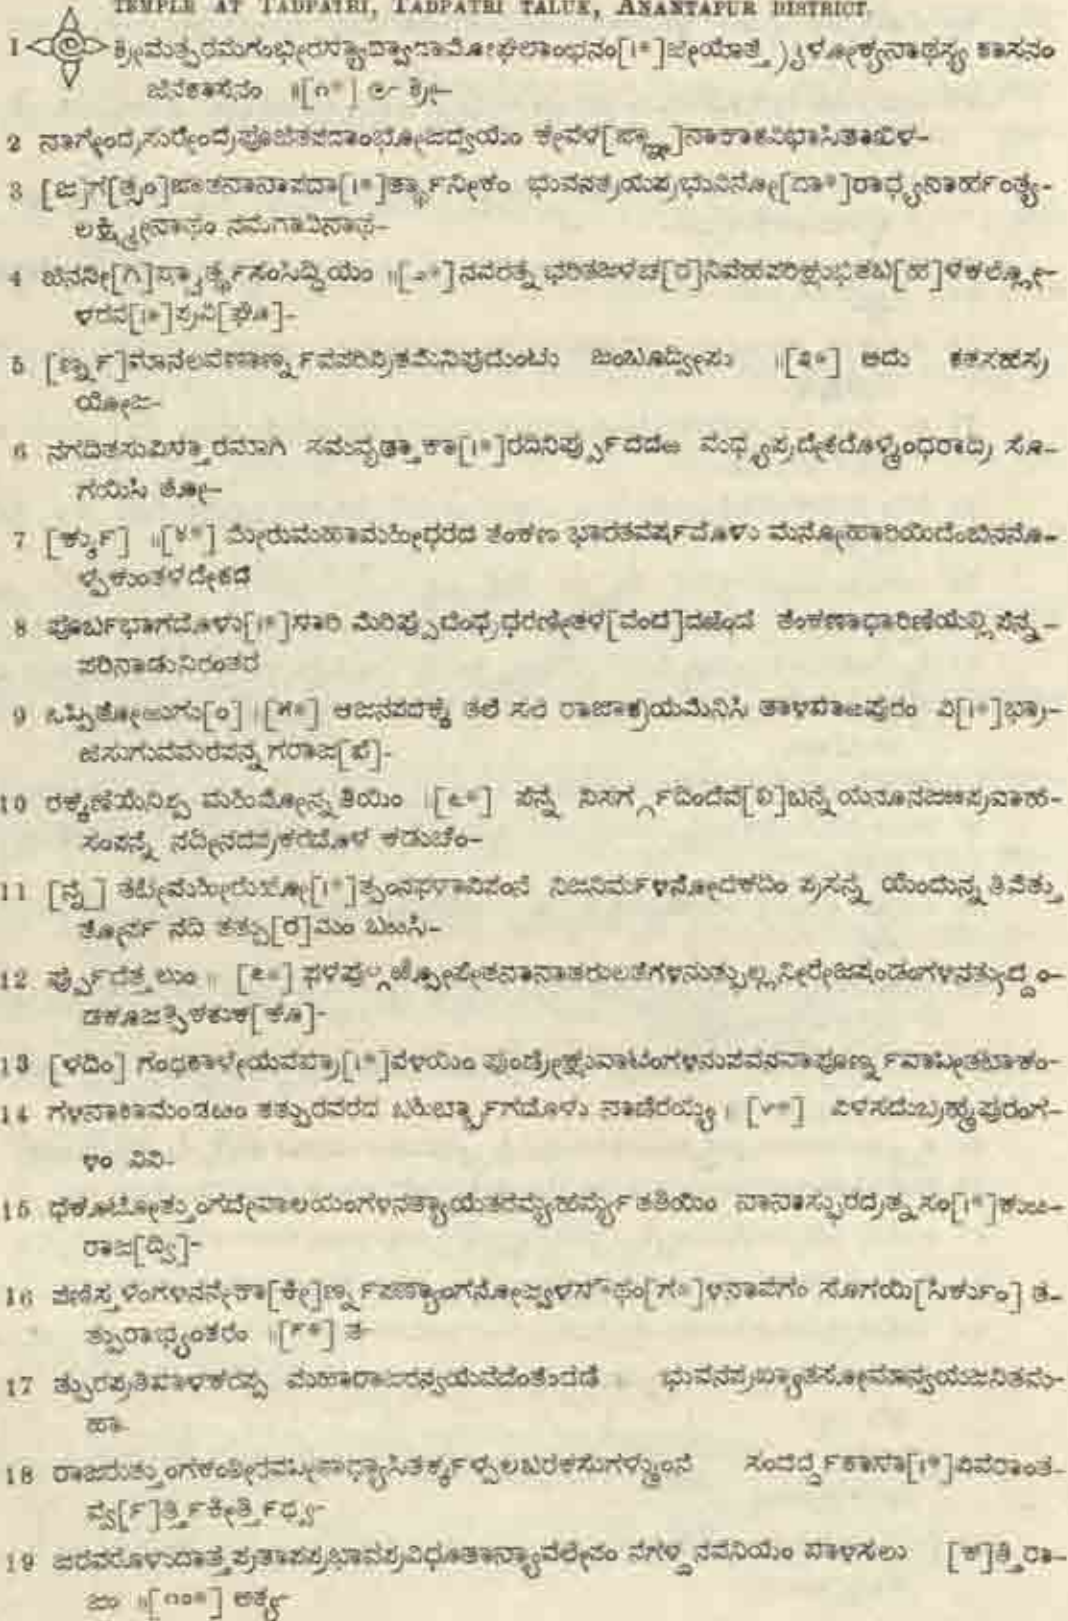 TEMPLE AT TADPATRI, TADPATRI TALUK, ANANTAPUR DISTRICT.
1 ಶ್ರೀಮತ್ಪರಮಗಂಭೀರಸ್ಯಾದ್ವಾದಾಮೋಘಲಾಂಛನಂ[।*]ಜೀಯಾತ್ತ್ರೈಳೋಕ್ಯನಾಥಸ್ಯ ಶಾಸನಂ
ಜಿನಶಾಸನಂ ॥[೧*] ಶ್ರೀ-
2 ನಾಗೇಂದ್ರಸುರೇಂದ್ರಪೂಜಿತಪದಾಂಭೋಜದ್ವಯಂ ಕೇವಳ[ಜ್ಞಾ]ನಾಕಾಶವಿಭಾಸಿತಾಖಿಳ-
3 [ಜ]ಗ[ತ್ಸಂ]ಜಾತನಾನಾಪದಾ[।*]ರ್ತ್ಥಾನೀಕಂ ಭುವನತ್ರಯಪ್ರಭುವಿನೋ[ದಾ*]ರಾಧ್ಯನಾರ್ಹಂತ್ಯ-
ಲಕ್ಷ್ಮೀನಾಥಂ ನಮಗಾವಿನಾಥ-
4 ಜಿನನೀ[ಗಿ]ಷ್ಟಾರ್ತ್ಥಸಂಸಿದ್ಧಿಯಂ ॥[೨*]ನವರತ್ನಭರಿತಜಳಚ[ರ]ನಿವಹಪರಿಕ್ಷುಭಿತಬ[ಹ]ಳಕಲ್ಲೋ-
ಳರವ[।*]ಪ್ರವಿ[ಘೂ]-
5 [ರ್ಣ್ನ]ಮಾನಲವಣಾರ್ಣ್ನವಪರಿವ್ರಿತಮೆನಿಪುದುಂಟು ಜಂಬೂದ್ವೀಪು ॥[೩*] ಅದು ಶತಸಹಸ್ರ
ಯೋಜ-
6 ನಗದಿತಸುವಿಸ್ತಾರಮಾಗಿ ಸಮವೃತ್ತಾಕಾ[।*]ರದಿನಿರ್ಪ್ಪುದದಱ ಮಧ್ಯಪ್ರದೇಶದೊಳ್ಮಂಧರಾದ್ರಿ ಸೊ-
ಗಯಿಸಿ ತೋ-
7 [ರ್ಕ್ಕು] ॥[೪*] ಮೇರುಮಹಾಮಹೀಧರದ ತೆಂಕಣ ಭಾರತವರ್ಷದೊಳು ಮನೋಹಾರಿಯಿದೆಂಬಿನನೊ-
ಳ್ಪಕುಂತಳದೇಶದ
8 ಪೂರ್ಬಭಾಗದೊಳು[।*]ಸಾರಿ ಮೆರಿಪ್ಪುದಂಧ್ರಧರಣೀತಳ[ವಂದ]ದಱಿಂದ ತೆಂಕಣಾಧಾರಿಣಿಯಲ್ಲಿ ಪೆನ್ನ-
ಪರಿನಾಡುನಿರಂತರ
9 ಒಪ್ಪಿತೋಱುಗು[ಂ] ।[೫*] ಆಜನಪದಕ್ಕೆ ತಲೆ ಸಲೆ ರಾಜಾಶ್ರಯಮೆನಿಸಿ ತಾಳಪಾಱಪುರಂ ವಿ[।*]ಭ್ರಾ-
ಜಿಸುಗುವಮರಪನ್ನಗರಾಜ[ಪೆ]-
10 ರಕ್ಕೆಣೆಯೆನಿಪ್ಪ ಮಹಿಮೋನ್ನತಿಯಿಂ ।[೬*] ಪೆನ್ನೆ ನಿಸರ್ಗ್ಗದಿಂದೆವೆ[ಖಿ]ಬನ್ನೆಯನೂನಜಳಪ್ರವಾಹ-
ಸಂಪನ್ನೆ ನದೀನದಪ್ರಕರದೊಳ ಕಡುಚೆಂ-
11 [ನ್ನೆ] ತಟೀಮಹೀರುಹೋ[।*]ತ್ಪಂನಫಳಾವಿಪಂನೆ ನಿಜನಿರ್ಮಳನೋದಕದಿಂ ಪ್ರಸನ್ನೆಯೆಂದುನ್ನತಿವೆತ್ತು
ತೋರ್ಪ ನದಿ ತತ್ಪು[ರ]ಮಂ ಬಳಸಿ-
12 ರ್ಪ್ಪುದೆತ್ತಲುಂ ॥ [೭*] ಫಳಪುಷ್ಪೋಪೇತನಾನಾತರುಲತೆಗಳನುತ್ಫುಲ್ಲನೀರೇಜಷಂಡಂಗಳನತ್ಯುದ್ದಂ-
ಡಕೂಜತ್ಪಿಕಶುಕ[ಕೊ]-
13 [ಳದಿಂ] ಗಂಧಶಾಳೇಯವಪ್ರಾ[।*]ವಳಯಿಂ ಪುಂಡ್ರೇಕ್ಷುವಾಟಂಗಳನುಪವನವಾಪೂರ್ಣ್ನವಾಪೀತಟಾಕಂ-
14 ಗಳನಾಶಾಮಂಡಳಂ ತತ್ಪುರವರದ ಬಹಿರ್ಬ್ಭಾಗದೊಳು ನಾಡೆರಯ್ಯ । [೮*] ವಿಳಸದುಬ್ರಹ್ಮಪುರಂಗ-
ಳಂ ವಿವಿ-
15 ಧಕೂಟೋತ್ತುಂಗದೇವಾಲಯಂಗಳನತ್ಯಾಯತರಮ್ಯಹರ್ಮ್ಯತತಿಯಿಂ ನಾನಾಸ್ಫುರದ್ರತ್ನಸಂ[।*]ಕುಳ-
ರಾಜ[ದ್ವಿ]-
16 ಪಣಿಸ್ತಳಂಗಳನನೇಕಾ[ಕೀ]ರ್ಣ್ನಪಣ್ಯಾಂಗನೋಜ್ವಳಸೌಧಂ[ಗ*]ಳನಾವಗಂ ಸೊಗಯಿ[ಸಿರ್ಕುಂ] ತ-
ತ್ಪುರಾಭ್ಯಂತರಂ ॥[೯*] ತ-
17 ತ್ಪುರಪ್ರತಿಪಾಳಕರಪ್ಪ ಮಹಾರಾಜರನ್ವಯವದೆಂತೆಂದಡೆ । ಭುವನಪ್ರಖ್ಯಾತಸೋಮಾನ್ವಯಜನಿತಮ-
ಹಾ-
18 ರಾಜರುತ್ತುಂಗಕಂಠೀರವಪೀಠಾಧ್ಯಾಸಿತರ್ಕ್ಕಳ್ಪಲಬರರಸುಗಳ್ಮುಂನೆ ಸಂದರ್ದ್ದಶಾಸಾ[।*]ವಿವರಾಂತ-
ವ್ವ[ರ್]ತ್ತಿಕೀರ್ತ್ತಿಧ್ವ-
19 ಜರವರೊಳುದಾತ್ತಪ್ರತಾಪಪ್ರಭಾವಪ್ರವಿಧೂತಾನ್ಯಾವಲೇಪಂ ನೆಗಳ್ದನವನಿಯಂ ಪಾಳಿಸಲು [ಕ]ತ್ತಿರಾ-
ಜಂ ॥[೧೦*] ಅತ್ಯ-